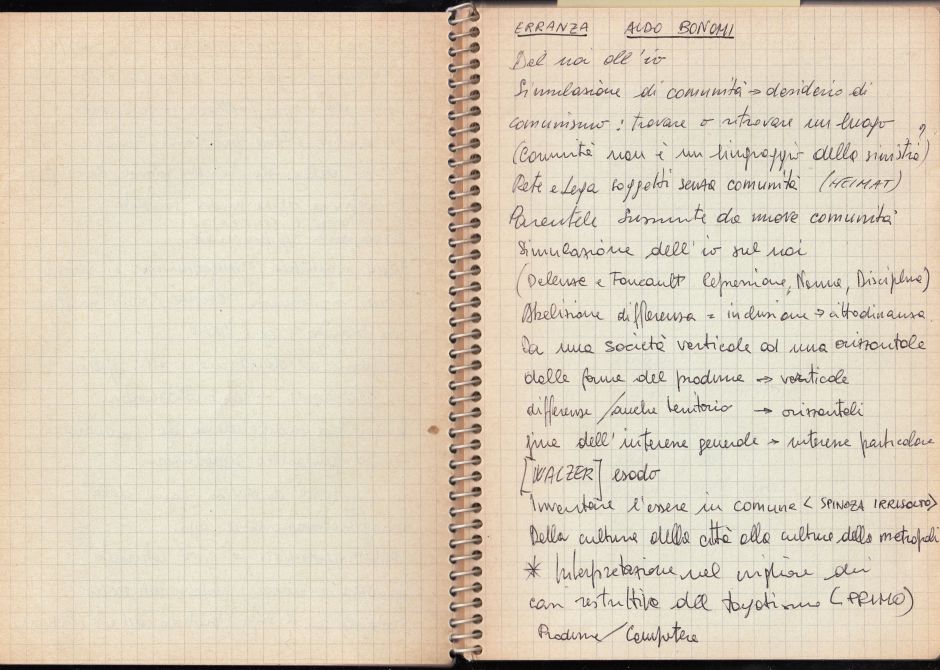 ERRANZA ALDO BONOMI
Dal noi all'io
Simulazione di comunità → desiderio di
comunismo: trovare o ritrovare un luogo
(Comunità non è un linguaggio della sinistra?)
Rete e Lega soggetti senza comunità (HEIMAT)
Parentele presunte da nuove comunità
Simulazione dell'io sul noi
(Deleuze e Foucault Repressione, Norma, Disciplina)
Abolizione differenza = inclusione → cittadinanza
Da una società verticale ad una orizzontale
dalle forme del produrre → verticale
differenze / anche territorio → orizzontali
fine dell'interesse generale → interesse particolare
[WALZER] esodo
Inventare l'essere in comune < SPINOZA IRRISOLTO >
Dalla cultura della città alla cultura della metropoli
* Interpretazione nel migliore dei
casi restrittiva del toyotismo (PRIMO)
Produrre / Competere